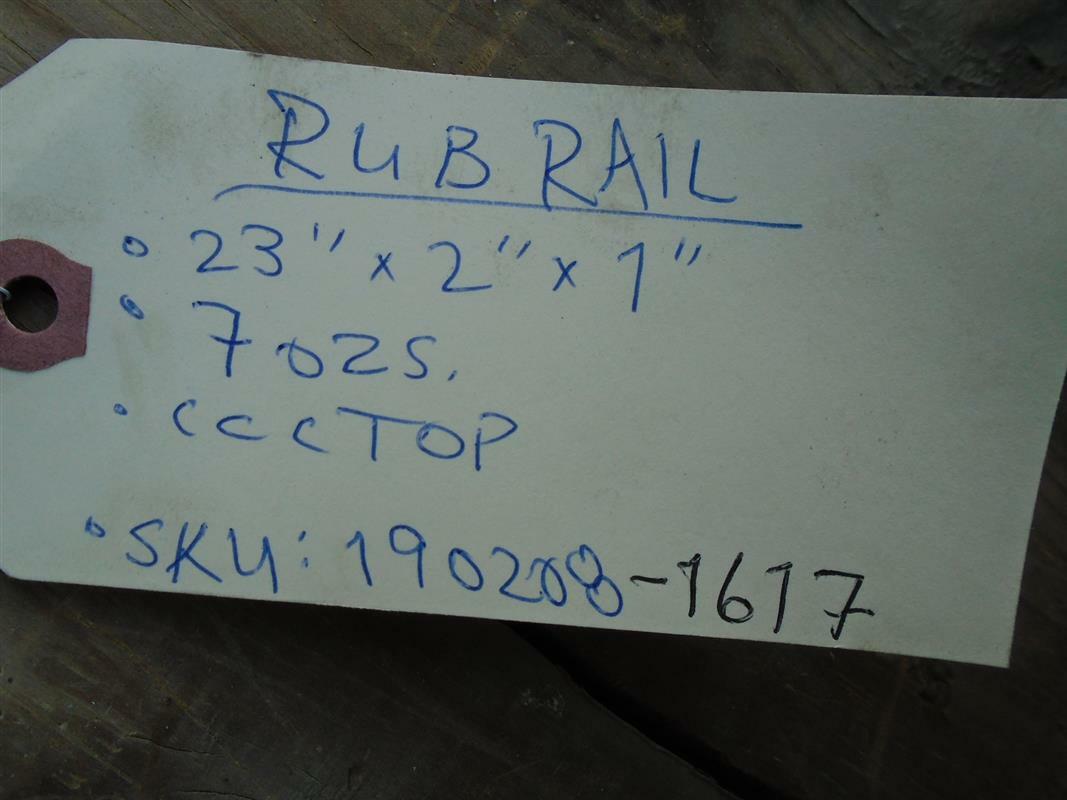 RUB RAIL
• 23" x 2" x 1"
• 7 OZS.
• CCCTOP
• SKU: 190208-1617